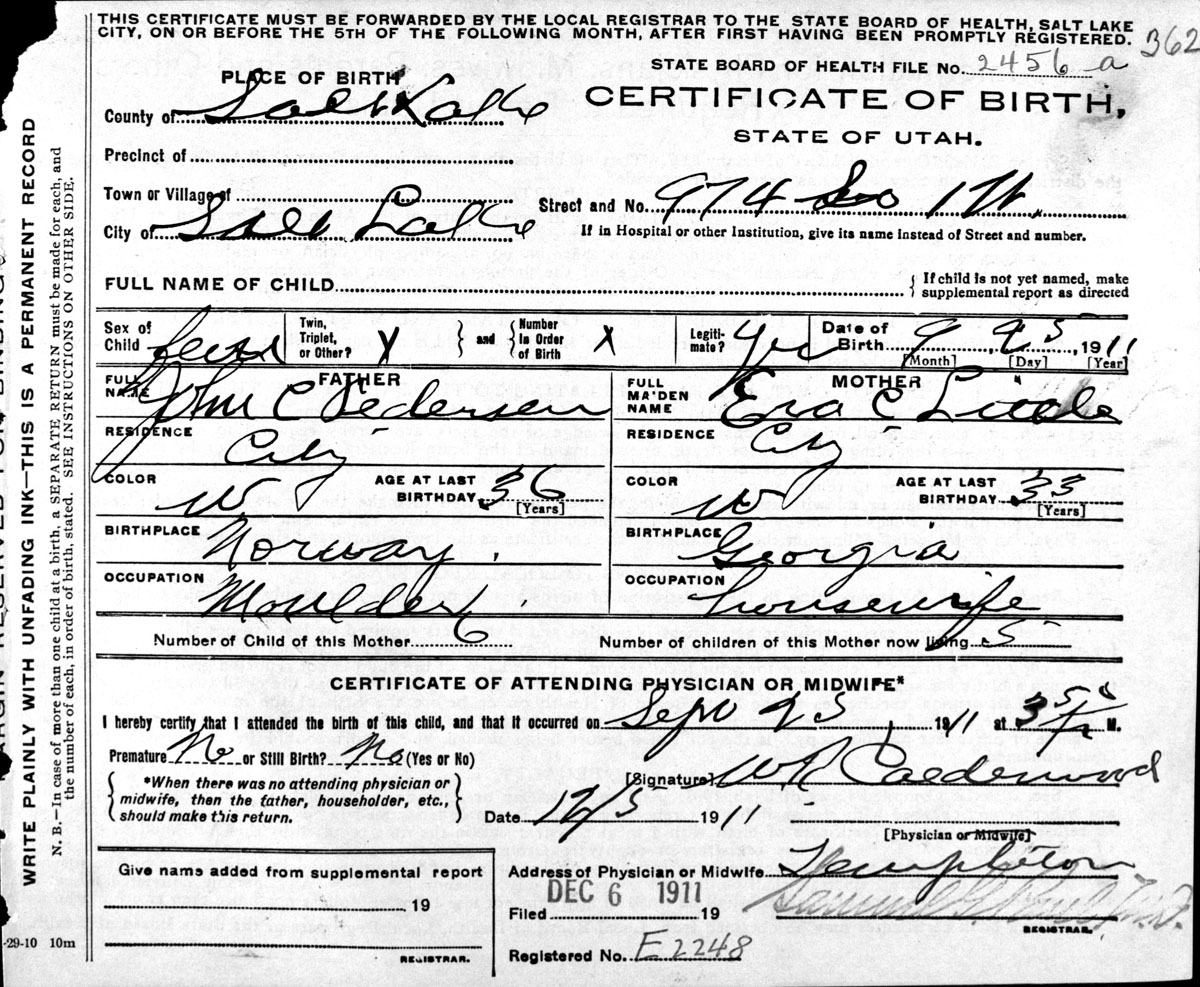 THIS CERTIFICATE MUST BE FORWARDED BY THE LOCAL REGISTRAR TO THE STATE BOARD OF HEALTH, SALT LAKE
CITY, ON OR BEFORE THE 5TH OF THE FOLLOWING MONTH, AFTER FIRST HAVING BEEN PROMPTLY REGISTERED. 362
STATE BOARD OF HEALTH FILE No. 2456 a
PLACE OF BIRTH
CERTIFICATE OF BIRTH,
STATE OF UTAH.
County of Salt Lake
Precinct of
Town or Village of
Street and No. 974 So 1 W.
City of Salt Lake
If in Hospital or other Institution, give its name instead of Street and number.
FULL NAME OF CHILD
If child is not yet named, make
supplemental report as directed
Sex of Child
Twin, Triplet, or Other?
and
Number In Order of Birth X
Legiti-mate? Yes
Date of Birth 9 25, 1911
[Month] [Day] [Year]
FATHER
FULL NAME John C Pedersen
MOTHER
FULL MAIDEN NAME Eva C Little
RESIDENCE City
RESIDENCE City
COLOR W AGE AT LAST BIRTHDAY 36 [Years]
COLOR W AGE AT LAST BIRTHDAY 33 [Years]
BIRTHPLACE Norway.
BIRTHPLACE Georgia
OCCUPATION Moulder
OCCUPATION Housewife
Number of Child of this Mother 6
Number of children of this Mother now living 5
CERTIFICATE OF ATTENDING PHYSICIAN OR MIDWIFE*
I hereby certify that I attended the birth of this child, and that it occurred on Sept 25, 1911 at M.
Premature No or Still Birth? No (Yes or No)
*When there was no attending physician or
midwife, then the father, householder, etc.,
should make this return.
[Signature] Calderwood
Date 12/5 1911
[Physician or Midwife]
Give name added from supplemental report
19
REGISTRAR.
Address of Physician or Midwife Templeton
Filed DEC 6 1911 19
REGISTRAR.
Registered No. E2248
-29-10 10m
WRITE PLAINLY WITH UNFADING INK—THIS IS A PERMANENT RECORD
N. B.—In case of more than one child at a birth, a SEPARATE RETURN must be made for each, and
the number of each, in order of birth, stated. SEE INSTRUCTIONS ON OTHER SIDE.